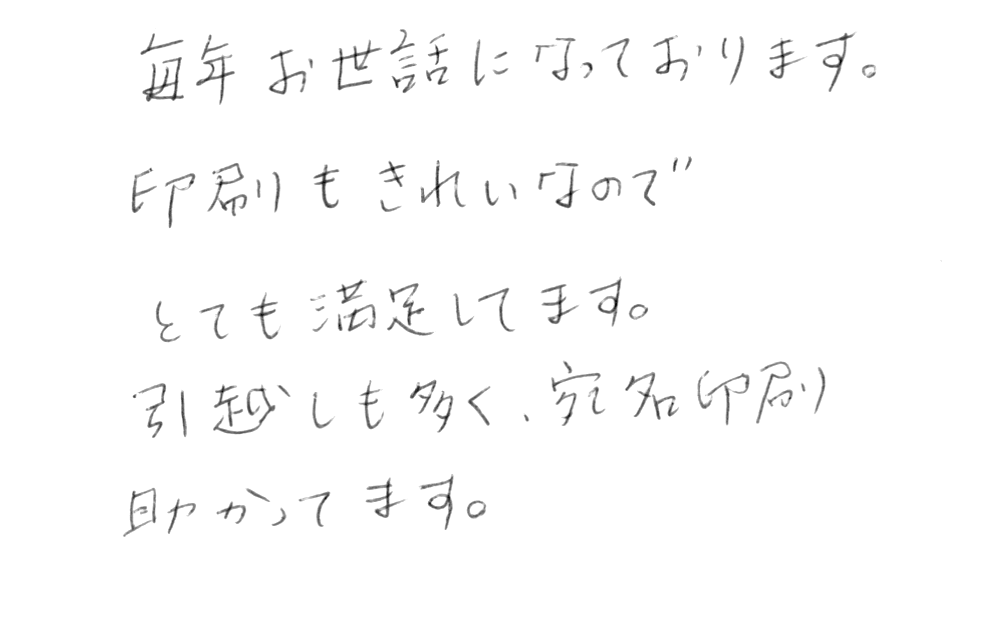 毎年お世話になっております。
印刷もきれいなので
とても満足してます。
引越しも多く、宛名印刷
助かってます。